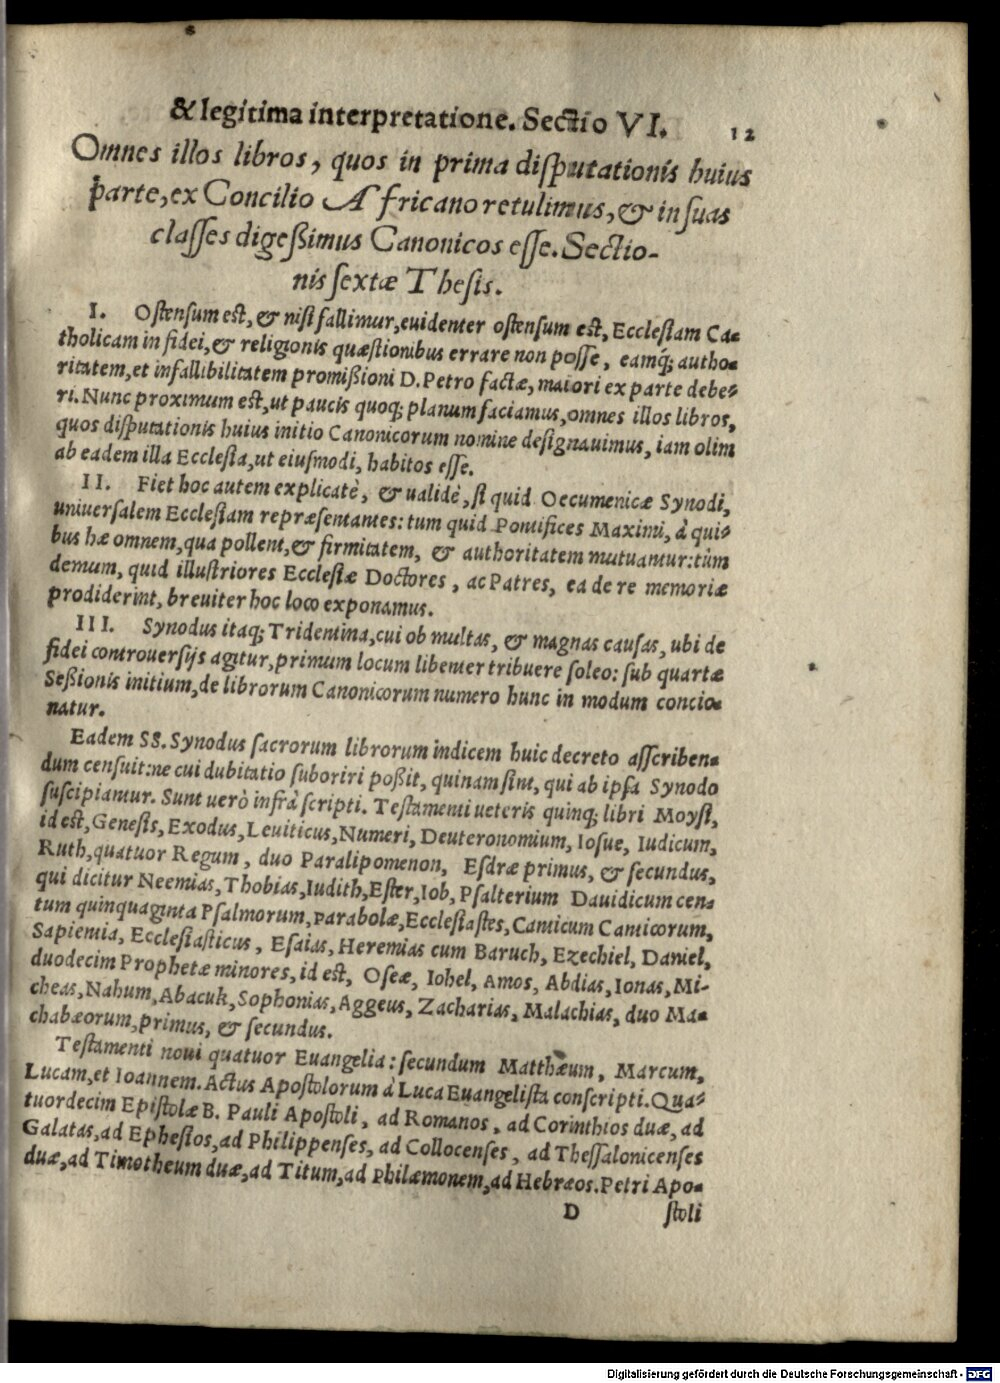 & legitima interpretatione. Sectio VI. 12
Omnes illos libros, quos in prima disputationis huius
parte, ex Concilio Africano retulimus, & in suas
classes digeßimus Canonicos esse. Sectio-
nis sextæ Thesis.
I. Ostensum est, & nisi fallimur, euidenter ostensum est, Ecclesiam Ca-
tholicam in fidei, & religionis quæstionibus errare non posse, eamq; autho-
ritatem, et infallibilitatem promißioni D. Petro factæ, maiori ex parte debe-
ri. Nunc proximum est, ut paucis quoq; planum faciamus, omnes illos libros,
quos disputationis huius initio Canonicorum nomine designauimus, iam olim
ab eadem illa Ecclesia, ut eiusmodi, habitos esse.
II. Fiet hoc autem explicatè, & ualidè, si quid Oecumenicæ Synodi,
uniuersalem Ecclesiam repræsentantes: tum quid Pontifices Maximi, à qui-
bus hæ omnem, qua pollent, & firmitatem, & authoritatem mutuantur: tùm
demum, quid illustriores Ecclesiæ Doctores, ac Patres, ea de re memoriæ
prodiderint, breuiter hoc loco exponamus.
III. Synodus itaq; Tridentina, cui ob multas, & magnas causas, ubi de
fidei controuersijs agitur, primum locum libenter tribuere soleo: sub quartæ
Seßionis initium, de librorum Canonicorum numero hunc in modum concio-
natur.
Eadem SS. Synodus sacrorum librorum indicem huic decreto asscriben-
dum censuit: ne cui dubitatio suboriri poßit, quinam sint, qui ab ipsa Synodo
suscipiantur. Sunt uerò infrà scripti. Testamenti ueteris quinq; libri Moysi,
id est, Genesis, Exodus, Leuiticus, Numeri, Deuteronomium, Iosue, Iudicum,
Ruth, quatuor Regum, duo Paralipomenon, Esdræ primus, & secundus,
qui dicitur Neemias, Thobias, Iudith, Ester, Iob, Psalterium Dauidicum cen-
tum quinquaginta Psalmorum, parabolæ, Ecclesiastes, Canticum Canticorum,
Sapientia, Ecclesiasticus, Esaias, Heremias cum Baruch, Ezechiel, Daniel,
duodecim Prophetæ minores, id est, Oseæ, Iohel, Amos, Abdias, Ionas, Mi-
cheas, Nahum, Abacuk, Sophonias, Aggeus, Zacharias, Malachias, duo Ma-
chabæorum, primus, & secundus.
Testamenti noui quatuor Euangelia: secundum Matthæum, Marcum,
Lucam, et Ioannem. Actus Apostolorum à Luca Euangelista conscripti. Qua-
tuordecim Epistolæ B. Pauli Apostoli, ad Romanos, ad Corinthios duæ, ad
Galatas, ad Ephesios, ad Philippenses, ad Collocenses, ad Thessalonicenses
duæ, ad Timotheum duæ, ad Titum, ad Philæmonem, ad Hebræos. Petri Apo-
D stoli
Digitalisierung gefördert durch die Deutsche Forschungsgemeinschaft - DFG